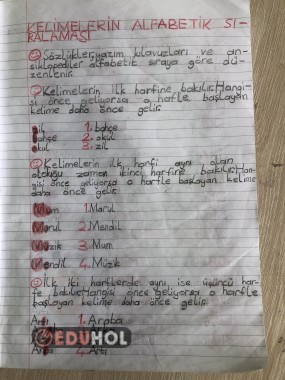 KELİMELERİN ALFABETİK SI-
RALAMASI
Sözlükler, yazım kılavuzları ve an-
siklopediler alfabetik sıraya göre dü-
zenlenir.
Kelimelerin ilk harfine bakılır. Hangi-
si önce geliyorsa o harfle başlayan
kelime daha önce gelir.
1. bahçe
bahçe 2. okul
okul 3. zil
Kelimelerin ilk harfi aynı olan
olduğu zaman ikinci harfine bakılır. Han-
gisi önce geliyorsa o harfle başlayan kelime
daha önce gelir.
Mum 1. Marul
Marul 2. Mendil
Müzik 3. Mum
Mendil 4. Müzik
İlk iki harflerde aynı ise üçüncü har-
fe bakılır. Hangisi önce geliyorsa o harfle
başlayan kelime daha önce gelir.
1. Araba
EDUHOL
4. Arı